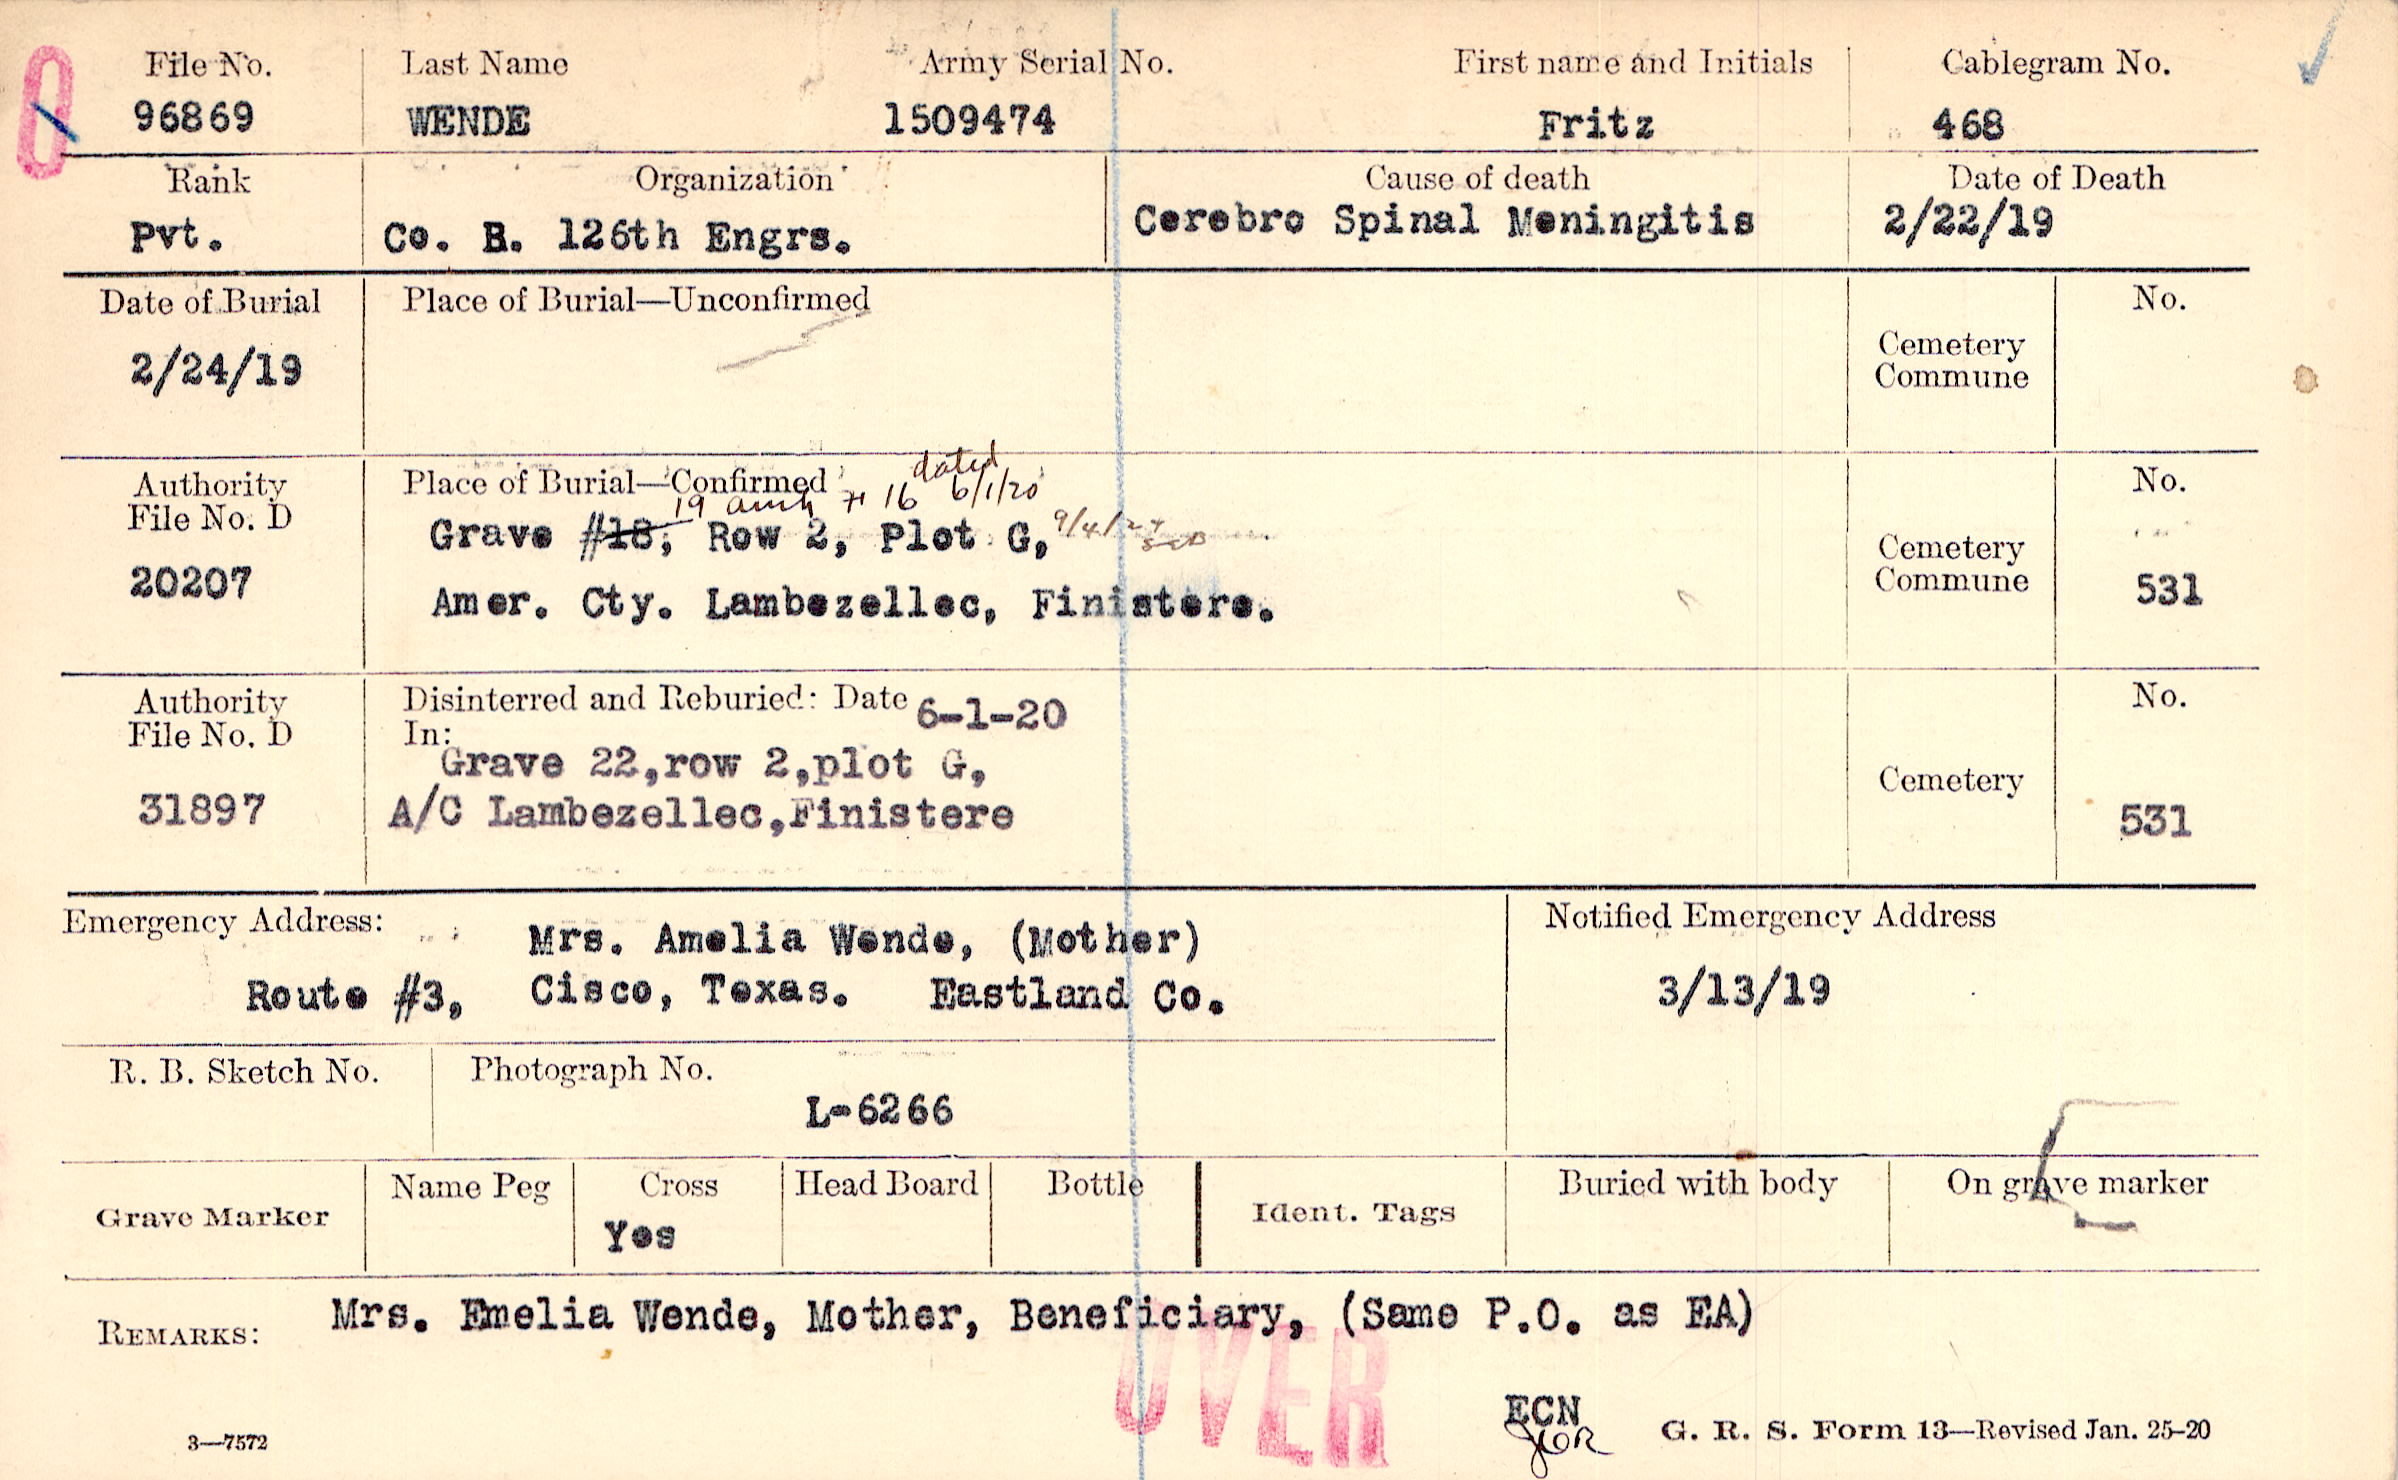 File No. Last Name Army Serial No. First name and Initials Cablegram No.
0 96869 WENDE 1509474 Fritz 468
Rank Organization Cause of death Date of Death
Pvt. Co. B. 126th Engrs. Cerebro Spinal Meningitis 2/22/19
Date of Burial Place of Burial—Unconfirmed No.
2/24/19 Cemetery
Commune
Authority Place of Burial—Confirmed dated No.
File No. D 19 # 16 6/1/20
Grave #18, Row 2, Plot G, 9/4/24
20207 Cemetery
Commune 531
Amer. Cty. Lambezellec, Finistere.
Authority Disinterred and Reburied: Date 6-1-20 No.
File No. D In:
Grave 22,row 2,plot G, Cemetery
31897 A/C Lambezellec,Finistere 531
Emergency Address: Mrs. Amelia Wende, (Mother) Notified Emergency Address
Route #3, Cisco, Texas. Eastland Co. 3/13/19
R. B. Sketch No. Photograph No.
L-6266
Grave Marker Name Peg Cross Head Board Bottle Ident. Tags Buried with body On grave marker
Yes
REMARKS: Mrs. Emelia Wende, Mother, Beneficiary, (Same P.O. as EA)
OVER
ECN
3—7572 G. R. S. Form 13—Revised Jan. 25-20